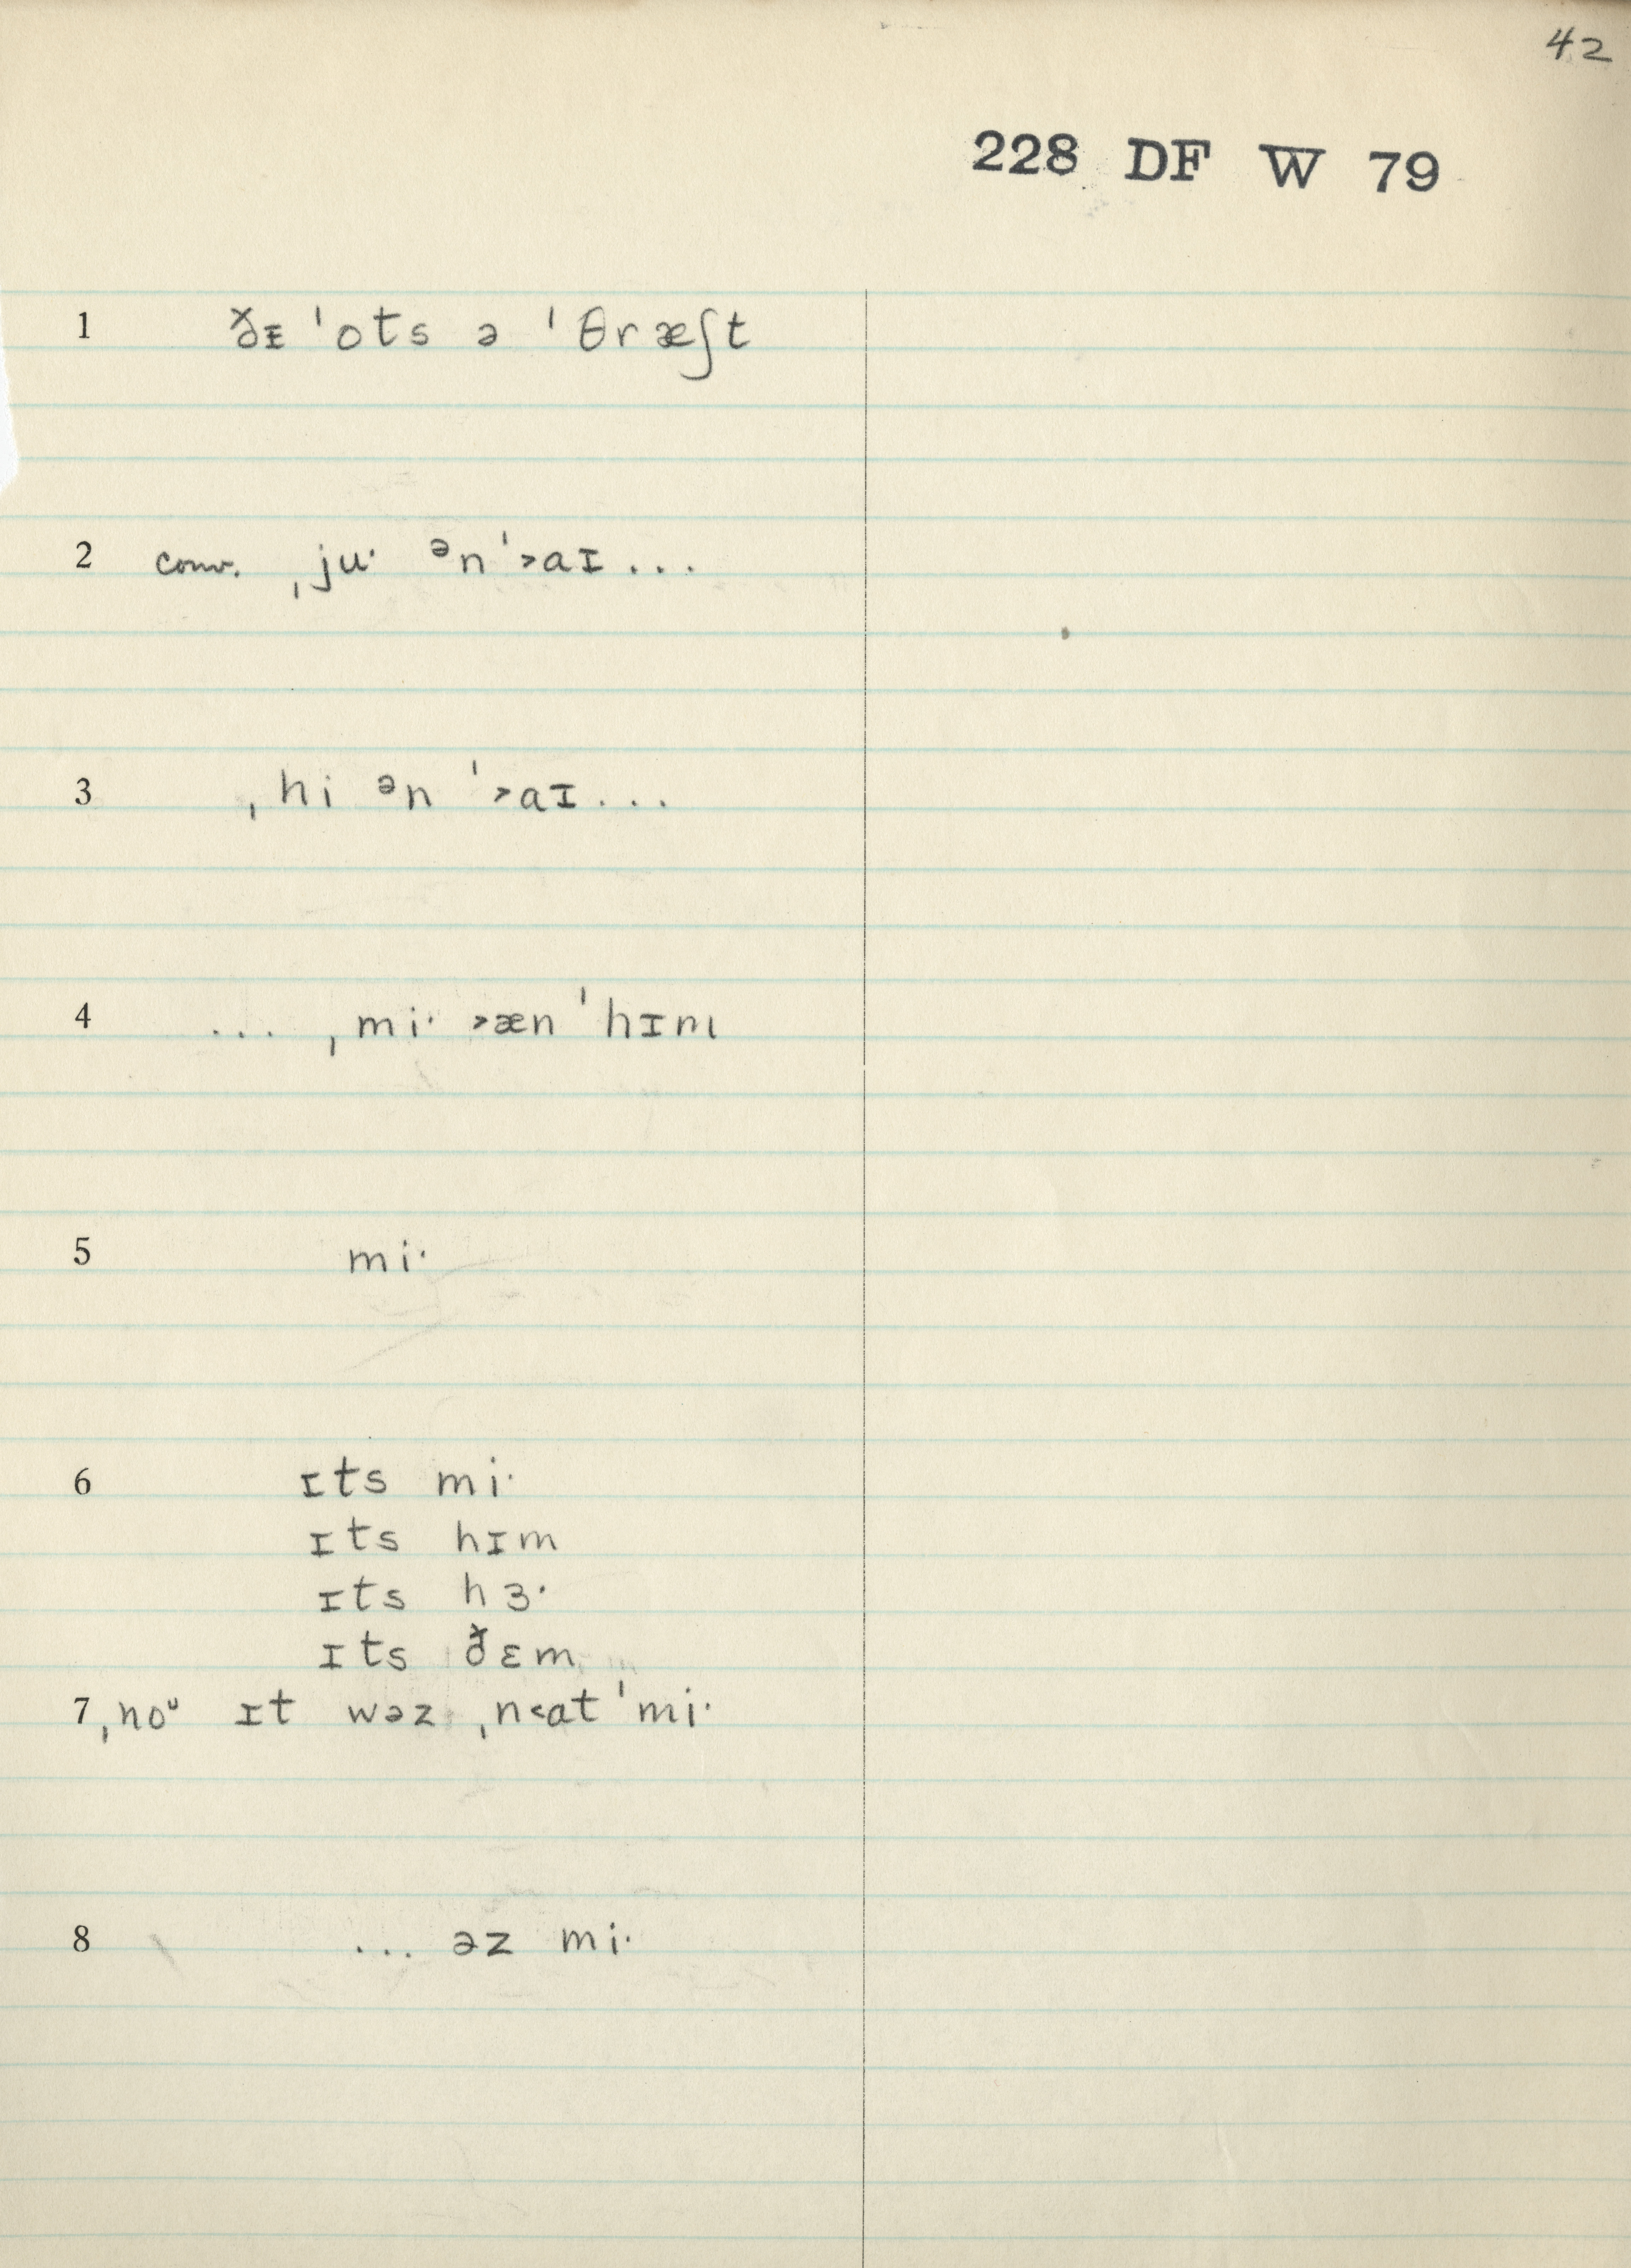 42
228 DF W 79
1 ðᵻ ˈots ə ˈθræʃt
2 conv. ˌju· ᵊn ˈ˃aɪ...
3 ˌhi ᵊn ˈ˃aɪ...
4 ... ˌmi· ˃æn ˈhɪm
5 mi·
6 ɪts mi·
ɪts hɪm
ɪts hɜ·
ɪts ðɛm
7 ˌnoᵘ ɪt wəz ˌn˂at ˈmi·
8 ... əz mi·